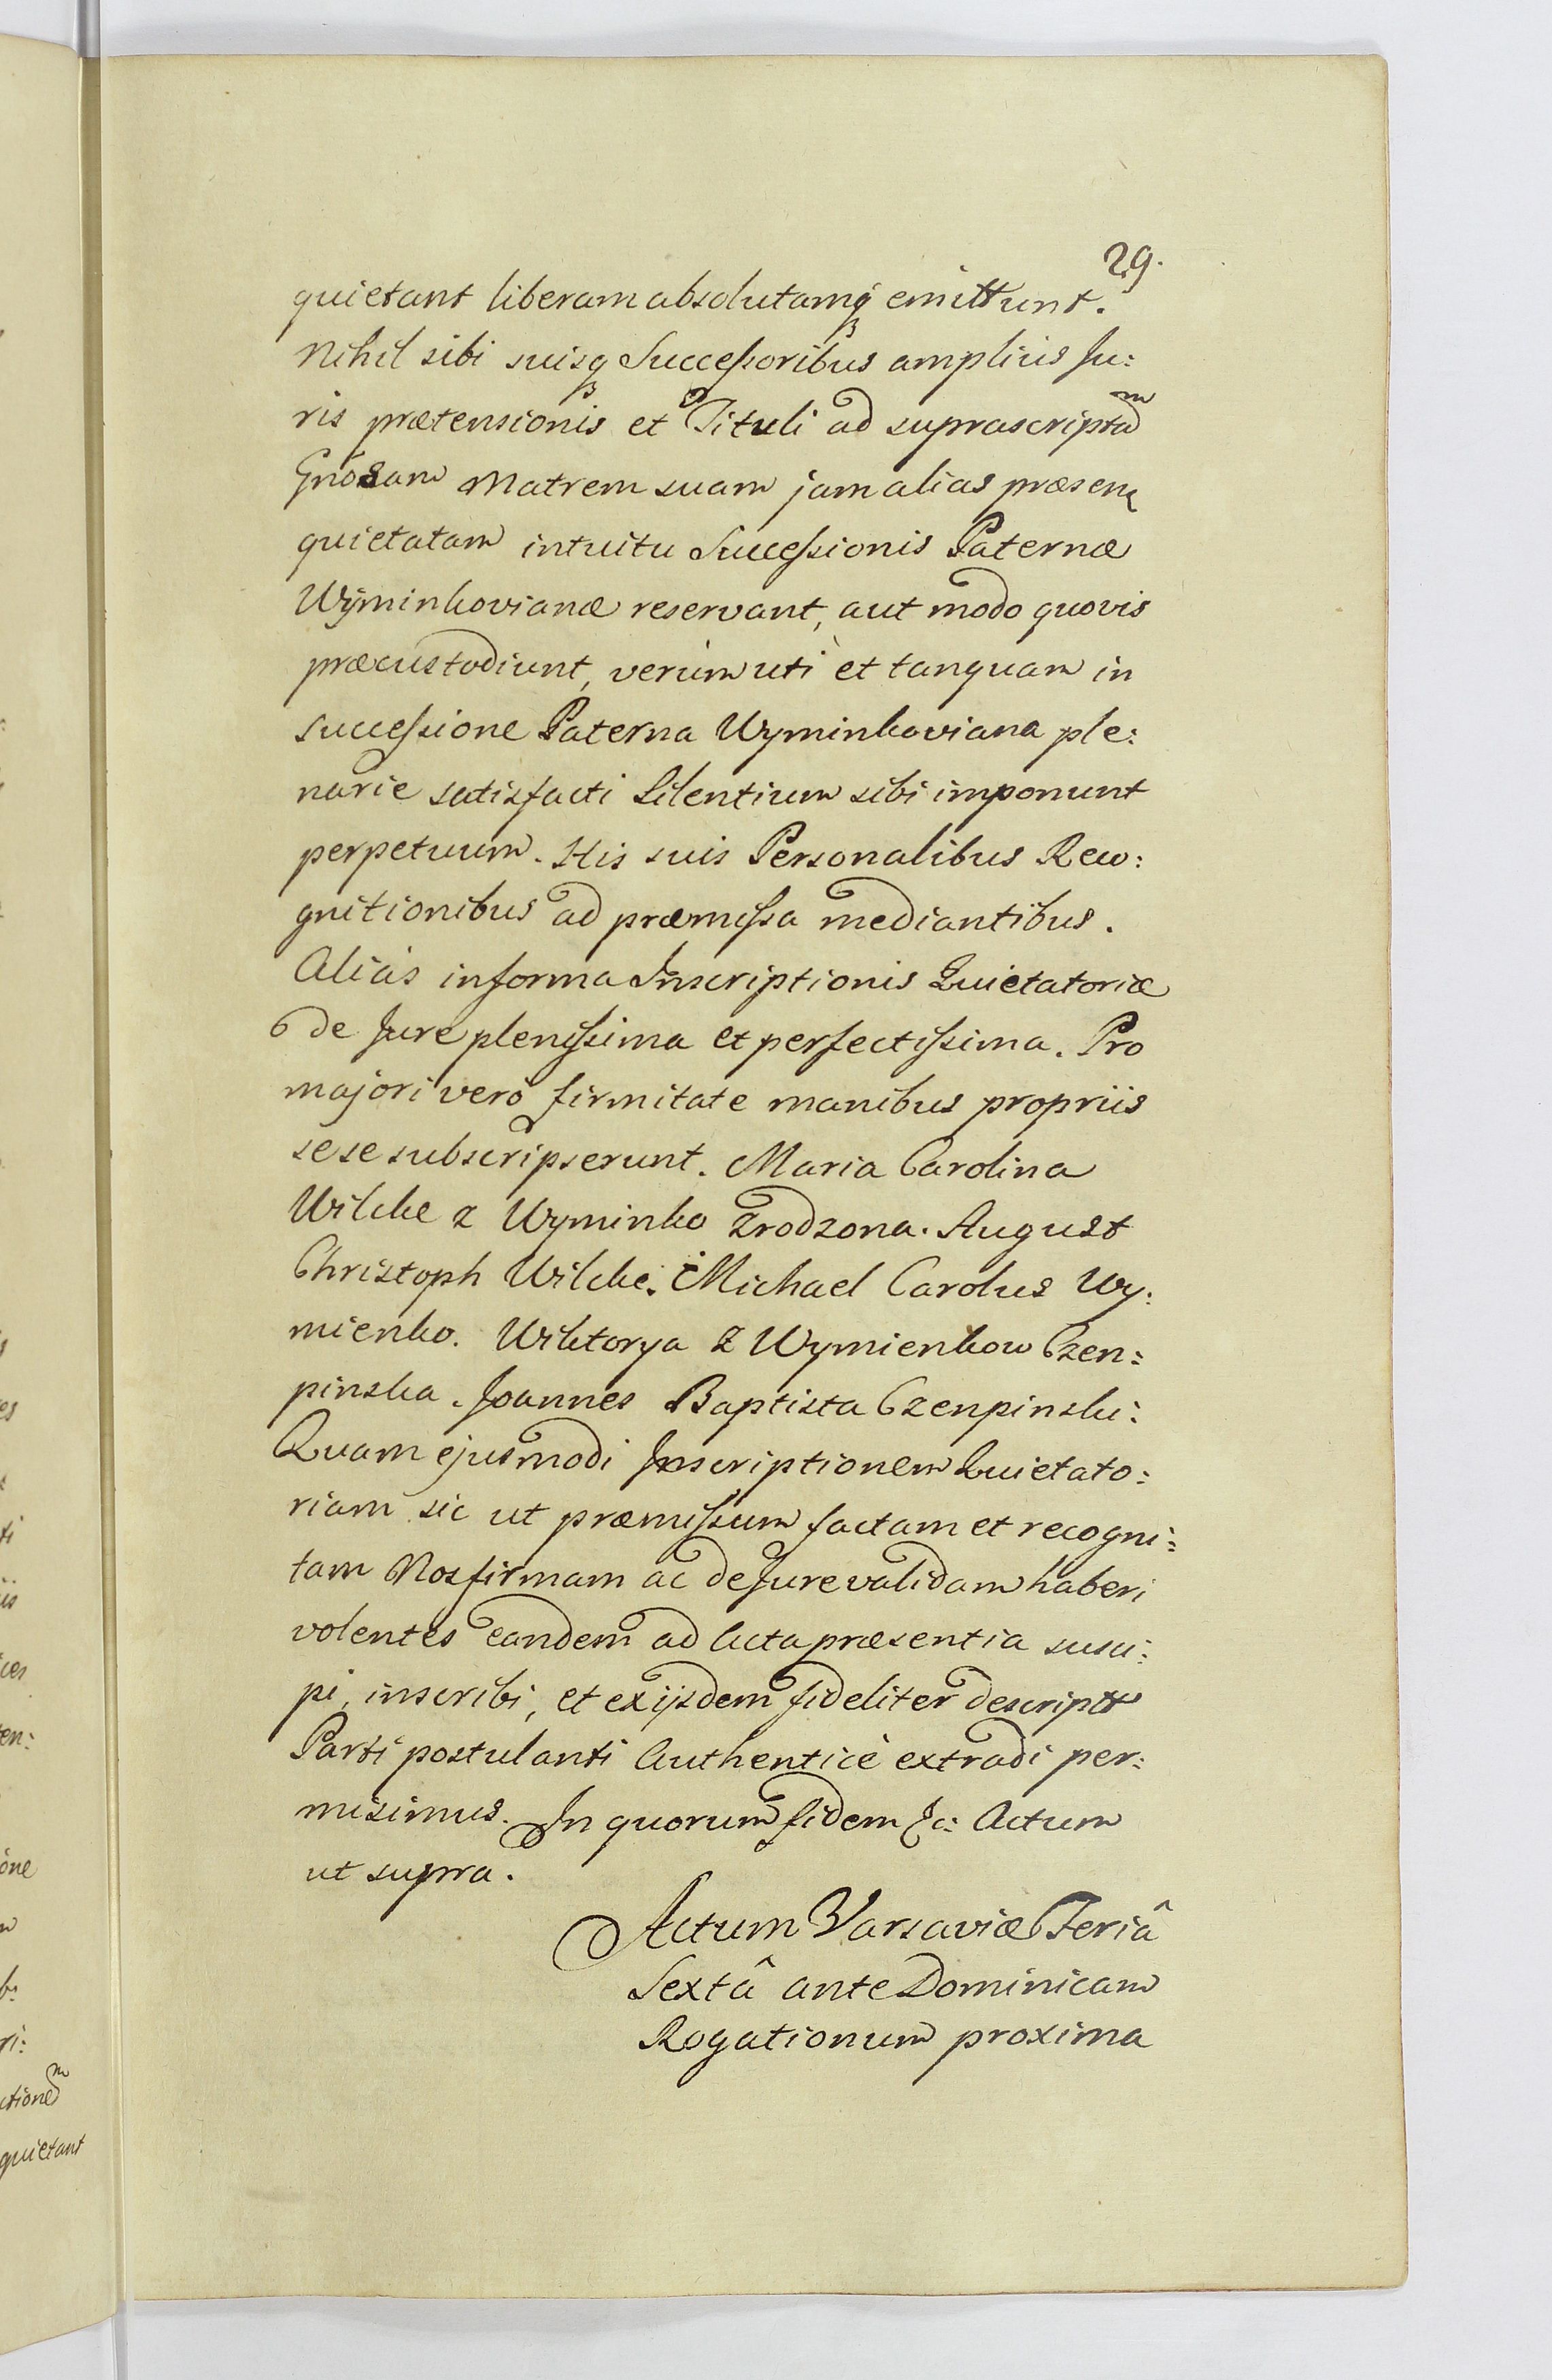 29.
quietant liberam absolutamq́ emittunt.
Nihil sibi suisq Successoribus amplius Ju:
ris prætensionis et Tituli ad suprascriptam
Gnosam Matrem suam jam alias præsen
quietatam intuitu Successionis Paternæ
Wyminkovianæ reservant, aut modo quovis
præcustodiunt, verùm uti et tanquam in
successione Paterna Wyminkoviana ple:
narie satisfacti Silentium sibi imponunt
perpetuum. His suis Personalibus Reco:
gnitionibus ad præmissa mediantibus.
Aliàs in forma Inscriptionis Quietatoriæ
de Jure plenissima et perfectissima. Pro
majori verò firmitate manibus propriis
sese subscripserunt. Maria Carolina
Wilcke z Wyminko Zrodzona. August
Christoph Wilcke. Michael Carolus Wy:
mienko. Wiktorya Z Wymienkow Czen:
pinska. Joannes Baptista Czenpinski:
Quam ejusmodi Inscriptionem Quietato:
riam sic ut præmissum factam et recogni:
tam Nos firmam ac de Jure validam haberi
volentes eandem ad Acta præsentia susci:
pi, inscribi, et ex ijsdem fideliter descript
Parti postulanti Authenticè extradi per:
misimus. In quorum fidem &c: Actum
ut supra.
Actum Varsaviæ Feriâ
Sextâ ante Dominicam
Rogationum proxima
ones
ctionem
quietant